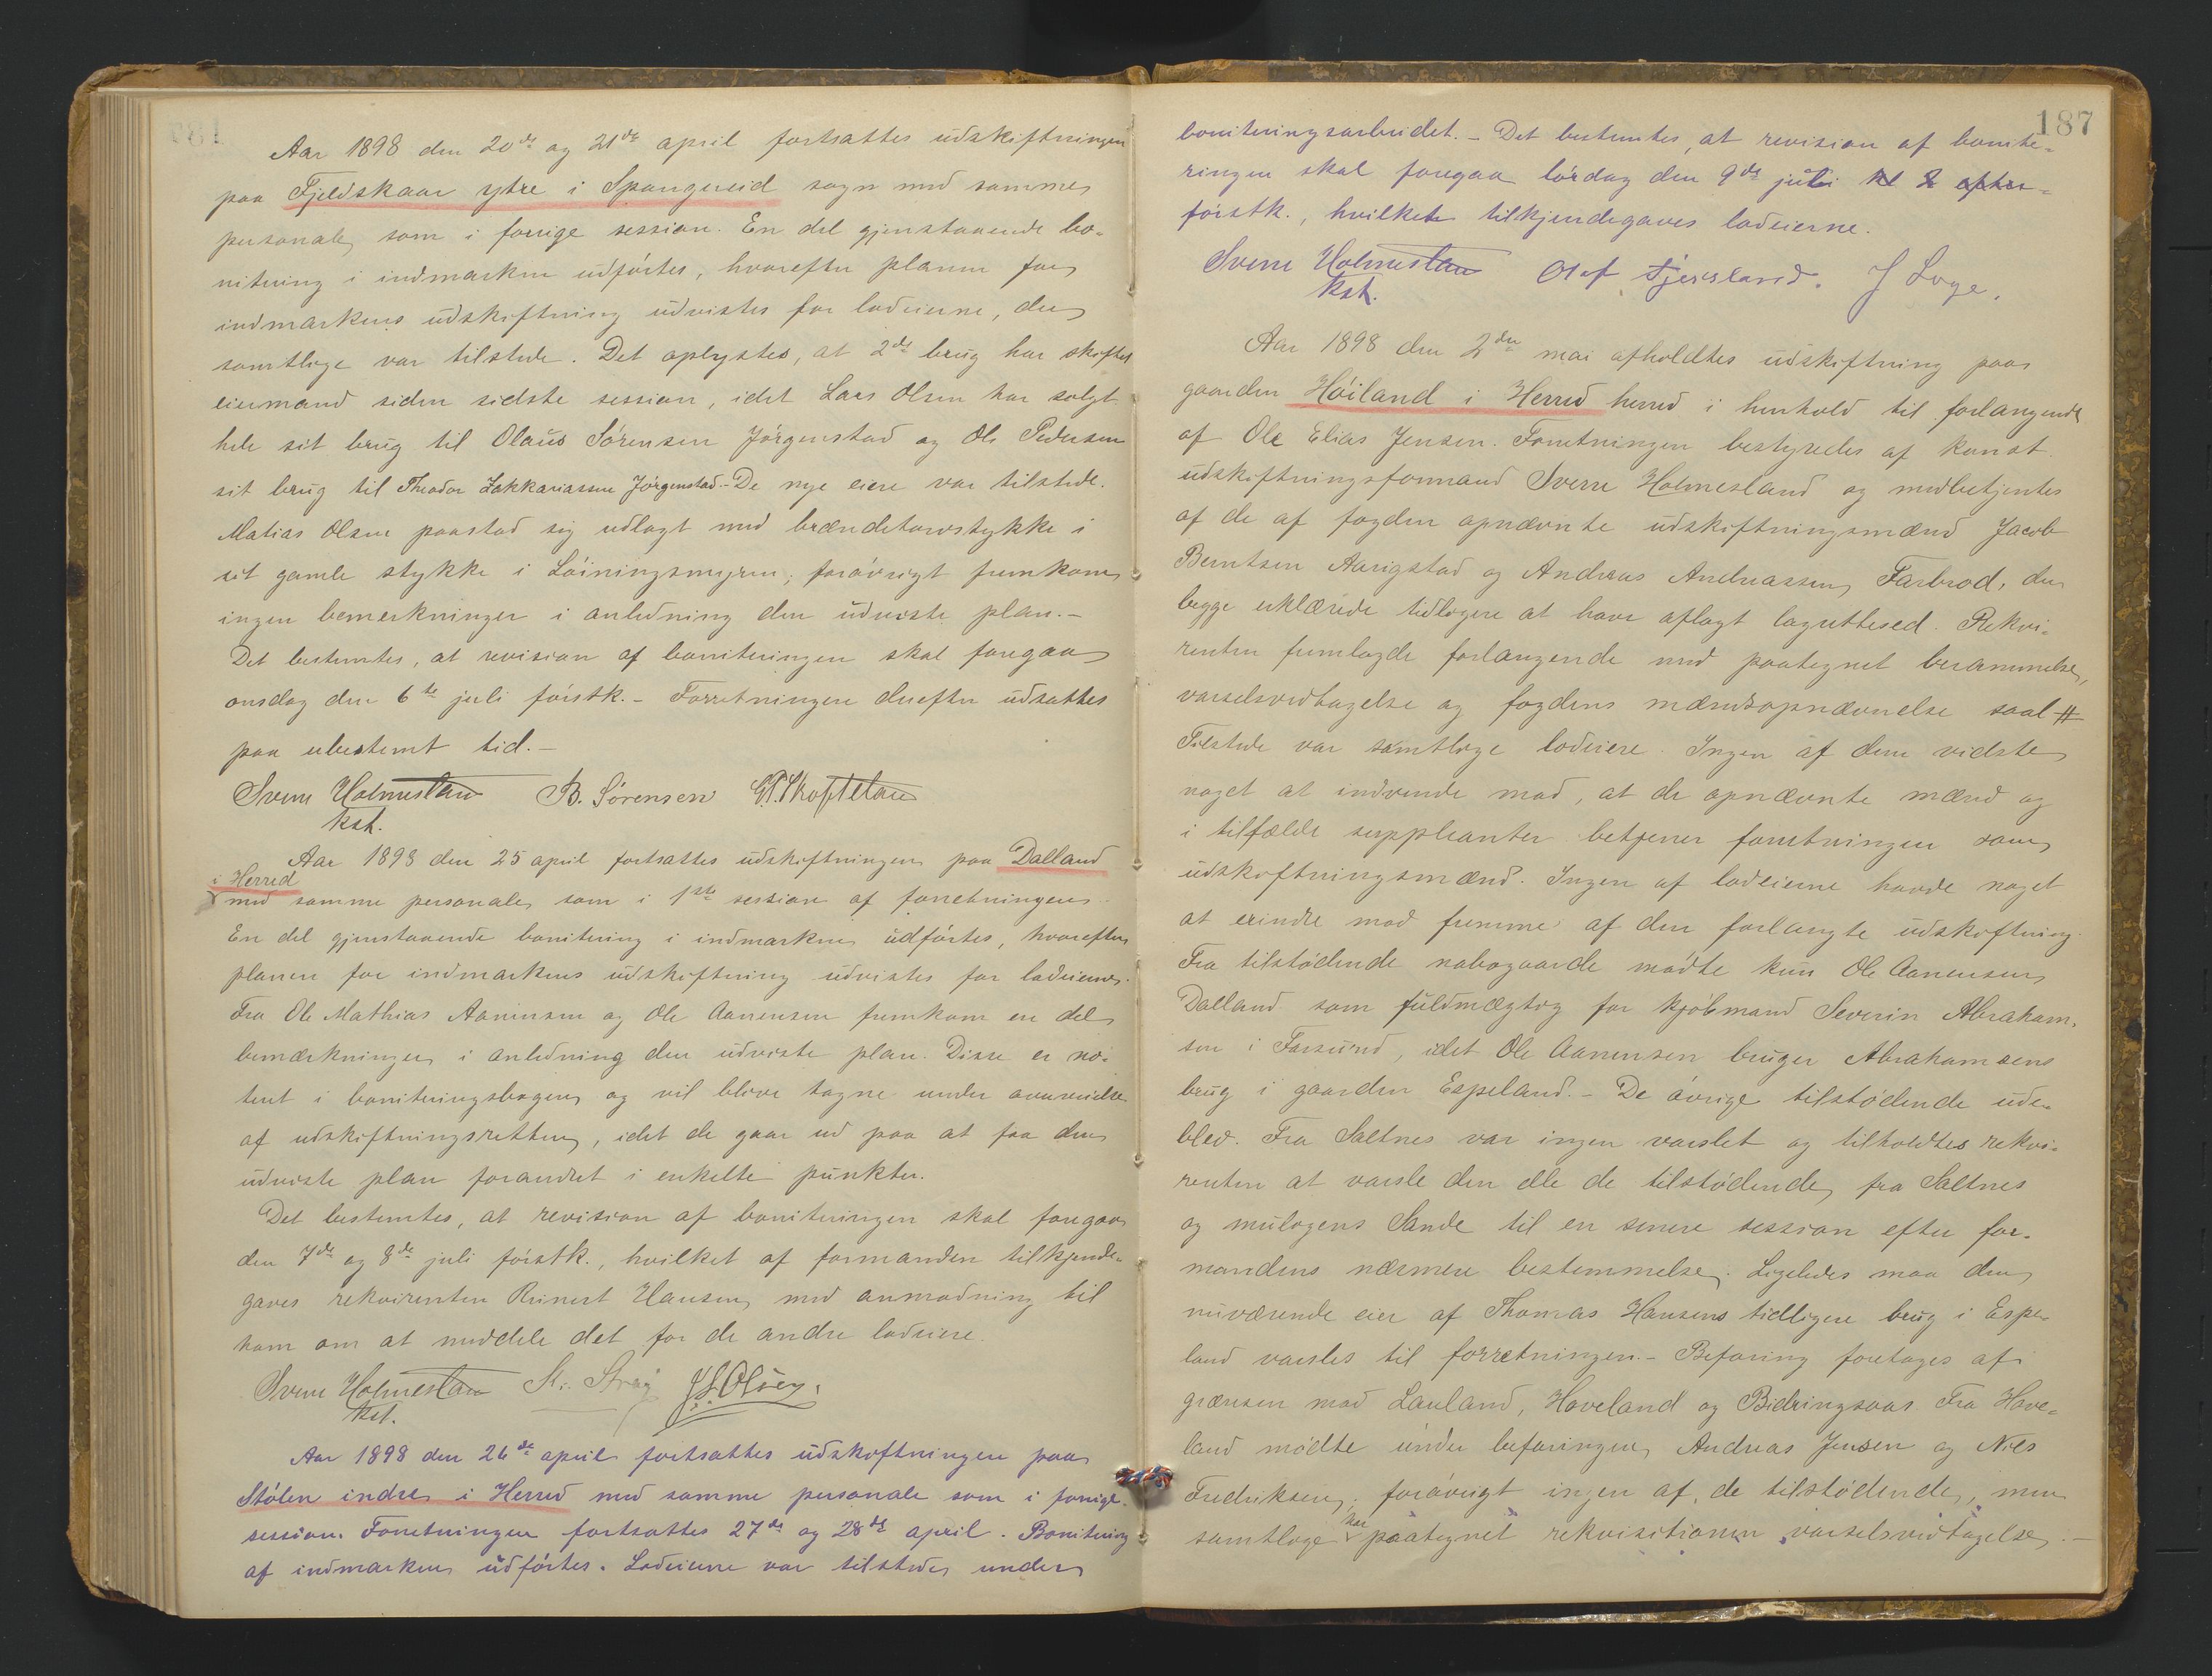 Aar 1898 den 20de og 21de april fortsattes udskiftningen
paa Fjeldskaar ytre i Spangereid sogn med samme
personale, som i forrige session. En del gjenstaaende bo-
nitering i indmarken udførtes, hvorefter planen for
indmarkens udskiftning udvistes for lodeierne, der
samtlige var tilstede. Det oplystes, at 2de brug har skiftet
eiermand siden sidste session, idet Lars Olsen har solgt
hele sit brug til Olaus Sørensen Jørgenstad og Ole Pedersen
sit brug til Theodor Zakkariassen Jørgenstad. - De nye eiere var tilstede.
Matias Olsen paastod sig udlagt med brændetorvstykke i
sit gamle stykke i Løiningsmyren; forøvrigt fremkom
ingen bemerkninger i anledning den udviste plan. -
Det bestemtes, at revision af boniteringen skal foregaa
onsdag den 6te juli førstk. - Forretningen derefter udsattes
paa ubestemt tid. -
Sverre Holmesland B. Sørensen G. T. Skofteland
kst.
Aar 1898 den 25 april fortsattes udskiftningen paa Dalland
i Herred
med samme personale, som i 1ste session af forretningen.
En del gjenstaaende bonitering i indmarken udførtes, hvorefter
planen for indmarkens udskiftning udvistes for lodeierne.
Fra Ole Mathias Aanensen og Ole Aanensen fremkom en del
bemærkninger i anledning den udviste plan. Disse er no-
teret i boniteringsbogen og vil blive tagne under overveielse
af udskiftningsretten, idet de gaar ud paa at faa den
udviste plan forandret i enkelte punkter.
Det bestemtes, at revision af boniteringen skal foregaa
den 7de og 8de juli førstk., hvilket af formanden tilkjende-
gaves rekvirenten Reinert Hansen med anmodning til
ham om at meddele det for de andre lodeiere.
Sverre Holmesland St. Stray J. S. Olsen.
kst.
Aar 1898 den 26de april fortsattes udskiftningen paa
Stølen indre i Herred med samme personale som i forrige
session. Forretningen fortsattes 27de og 28de april. Bonitering
af indmarken udførtes. Lodeierne var tilstede under
187
boniteringsarbeidet. - Det bestemtes, at revision af bonite-
ringen skal foregaa lørdag den 9de juli kl 2 efter-
førstk., hvilket tilkjendegaves lodeierne.
Sverre Holmesland Olaf Tjersland. J Loge.
kst.
Aar 1898 den 2den mai afholdtes udskiftning paa
gaarden Høiland i Herred herred i henhold til forlangende
af Ole Elias Jensen. Forretningen bestyredes af konst.
udskiftningsformand Sverre Holmesland og medbetjentes
af de af fogden opnævnte udskiftningsmænd Jacob
Berntsen Aarigstad og Andreas Andreassen Farbrod, der
begge erklærede tidligere at have aflagt lagrettesed. Rekvi-
renten fremlagde forlangende med paategnet berammelse,
varselsvedtagelse og fogdens mændsopnævnelse saal #
Tilstede var samtlige lodeiere. Ingen af dem vidste
noget at indvende mod, at de opnævnte mænd og
i tilfælde suppleanter betjener forretningen som
udskiftningsmænd. Ingen af lodeierne havde noget
at erindre mod fremme af den forlangte udskiftning.
Fra tilstødende nabogaarde mødte kun Ole Aanensen
Dalland som fuldmægtig for kjøbmand Severin Abraham-
sen i Farsund, idet Ole Aanensen bruger Abrahamsens
brug i gaarden Espeland. - De øvrige tilstødende ude-
blev. Fra Saltnes var ingen varslet og tilholdtes rekvi-
renten at varsle den elle de tilstødende fra Saltnes
og muligens Sande til en senere session efter for-
mandens nærmere bestemmelse. Ligeledes maa den
nuværende eier af Thomas Hansens tidligere brug i Espe-
land varsles til forretningen. - Befaring foretages af
grænsen mod Lauland, Haveland og Bidringsaas. Fra Have-
land mødte under befaringen Andreas Jensen og Nils
Fredriksen, forøvrigt ingen af de tilstødende, men
samtlige har paategnet rekvisitionen varselsvedtagelse. -